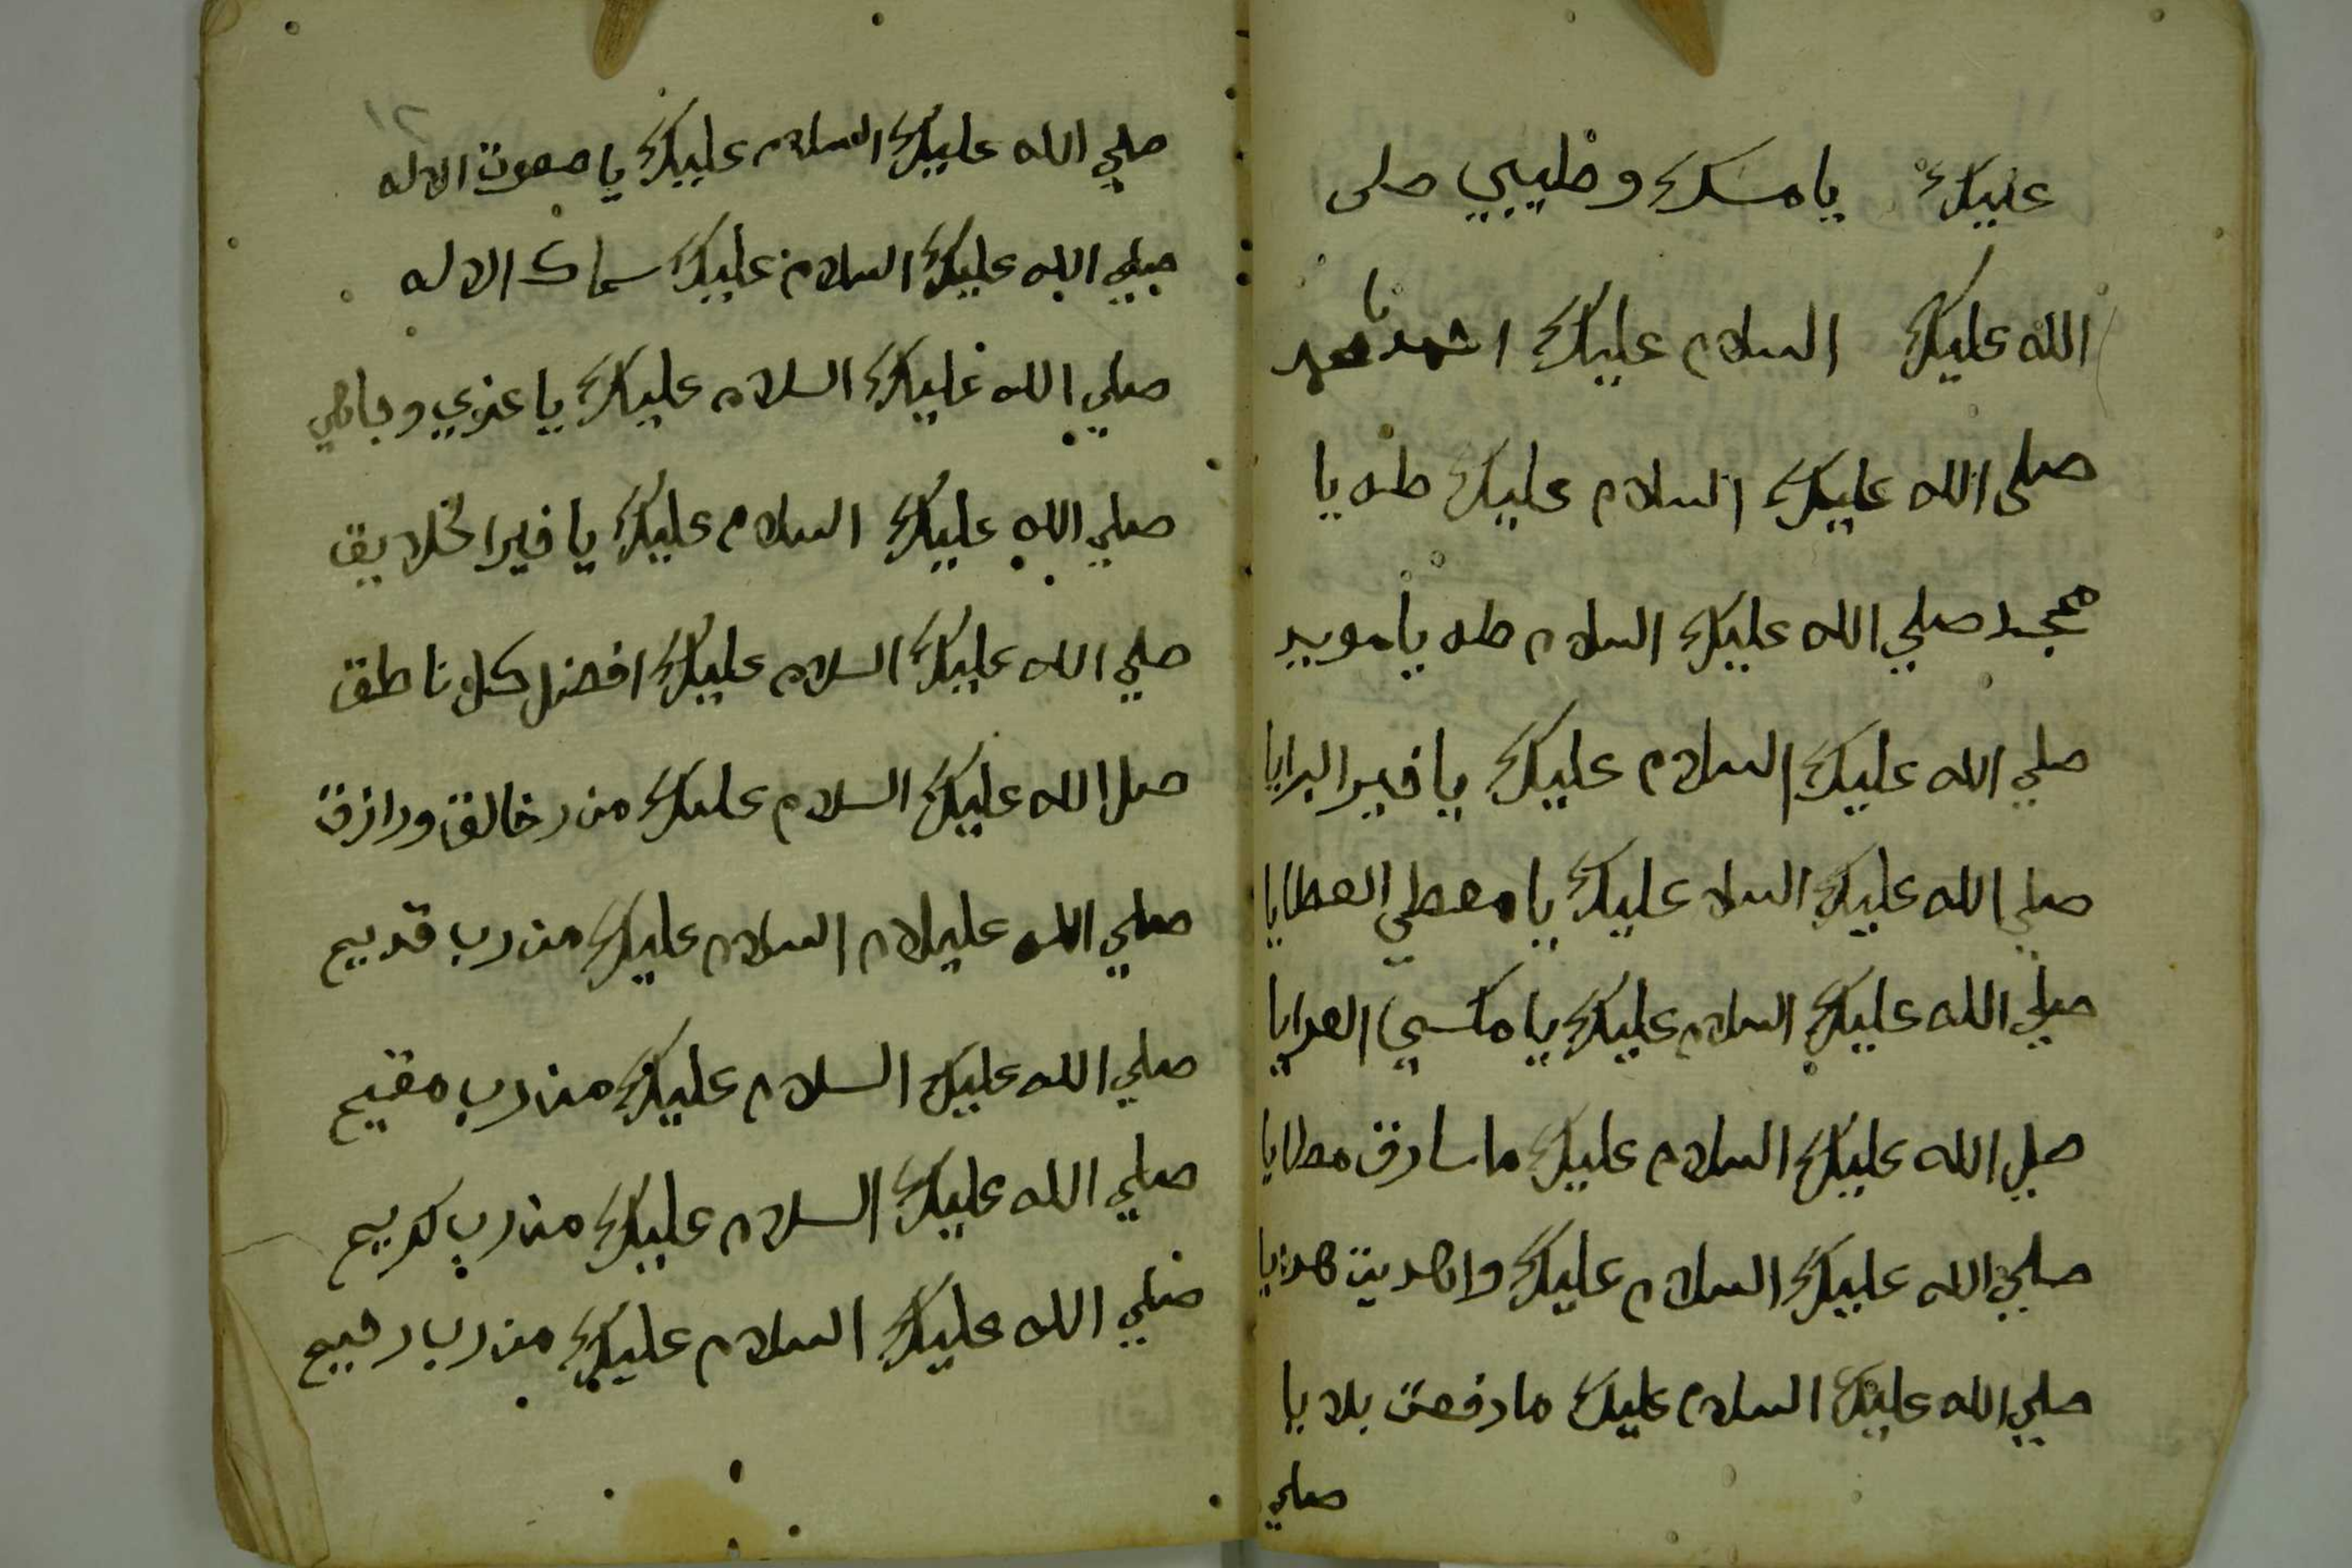 عليك يا مسك وطيبي صلى
الله عليك السلام عليك احمد يا محمد
صلى الله عليك السلام عليك طه يا
ممجد صلي الله عليك السلام طه يا مويد
صلي الله عليك السلام عليك يا خير البرايا
صلي الله عليك السلا عليك يا معطي العطايا
صلي الله عليك السلام عليك يا مكسي العرايا
صلي الله عليك السلام عليك ما سارت مطايا
صلي الله عليك السلام عليك واهديت هدايا
صلي الله عليك السلام عليك ما دفعت بلايا
صلي
١٢
صلي الله عليك السلام عليك يا صفوت الاله
صلي الله عليك السلام عليك سماك الاله
صلي الله عليك السلام عليك يا عزي وجاهي
صلي الله عليك السلام عليك يا خير الخلايق
صلي الله عليك السلام عليك افضل كل ناطق
صل الله عليك السلام عليك من خالق ورازق
صلي الله عليلام السلام عليك من رب قديم
صلي الله عليك السلام عليك من رب مقيم
صلي الله عليك السلام عليك من رب كريم
صلي الله عليك السلام عليك من رب رحيم